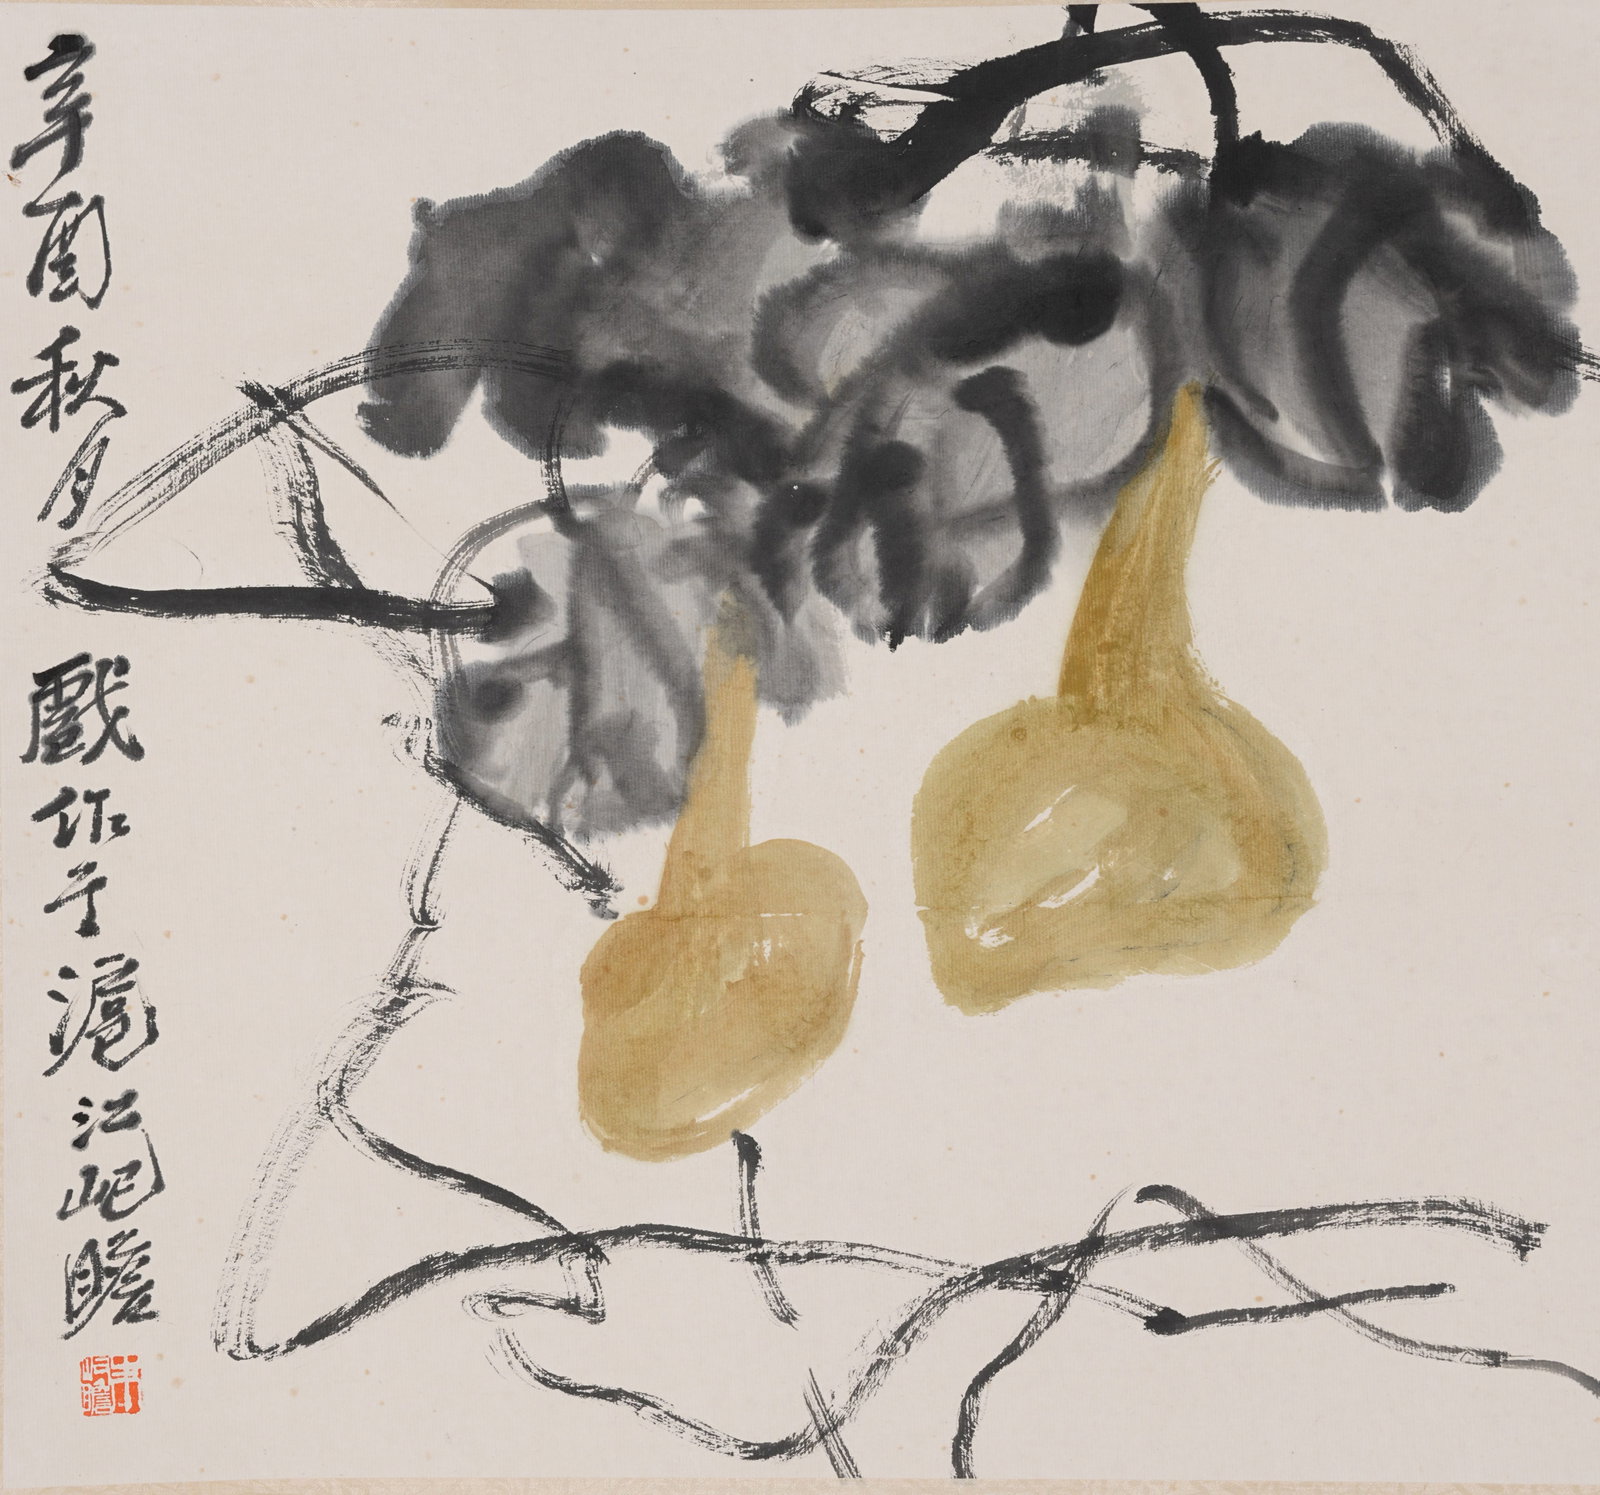 辛酉秋月戲作于滬江屺瞻
朱屺瞻